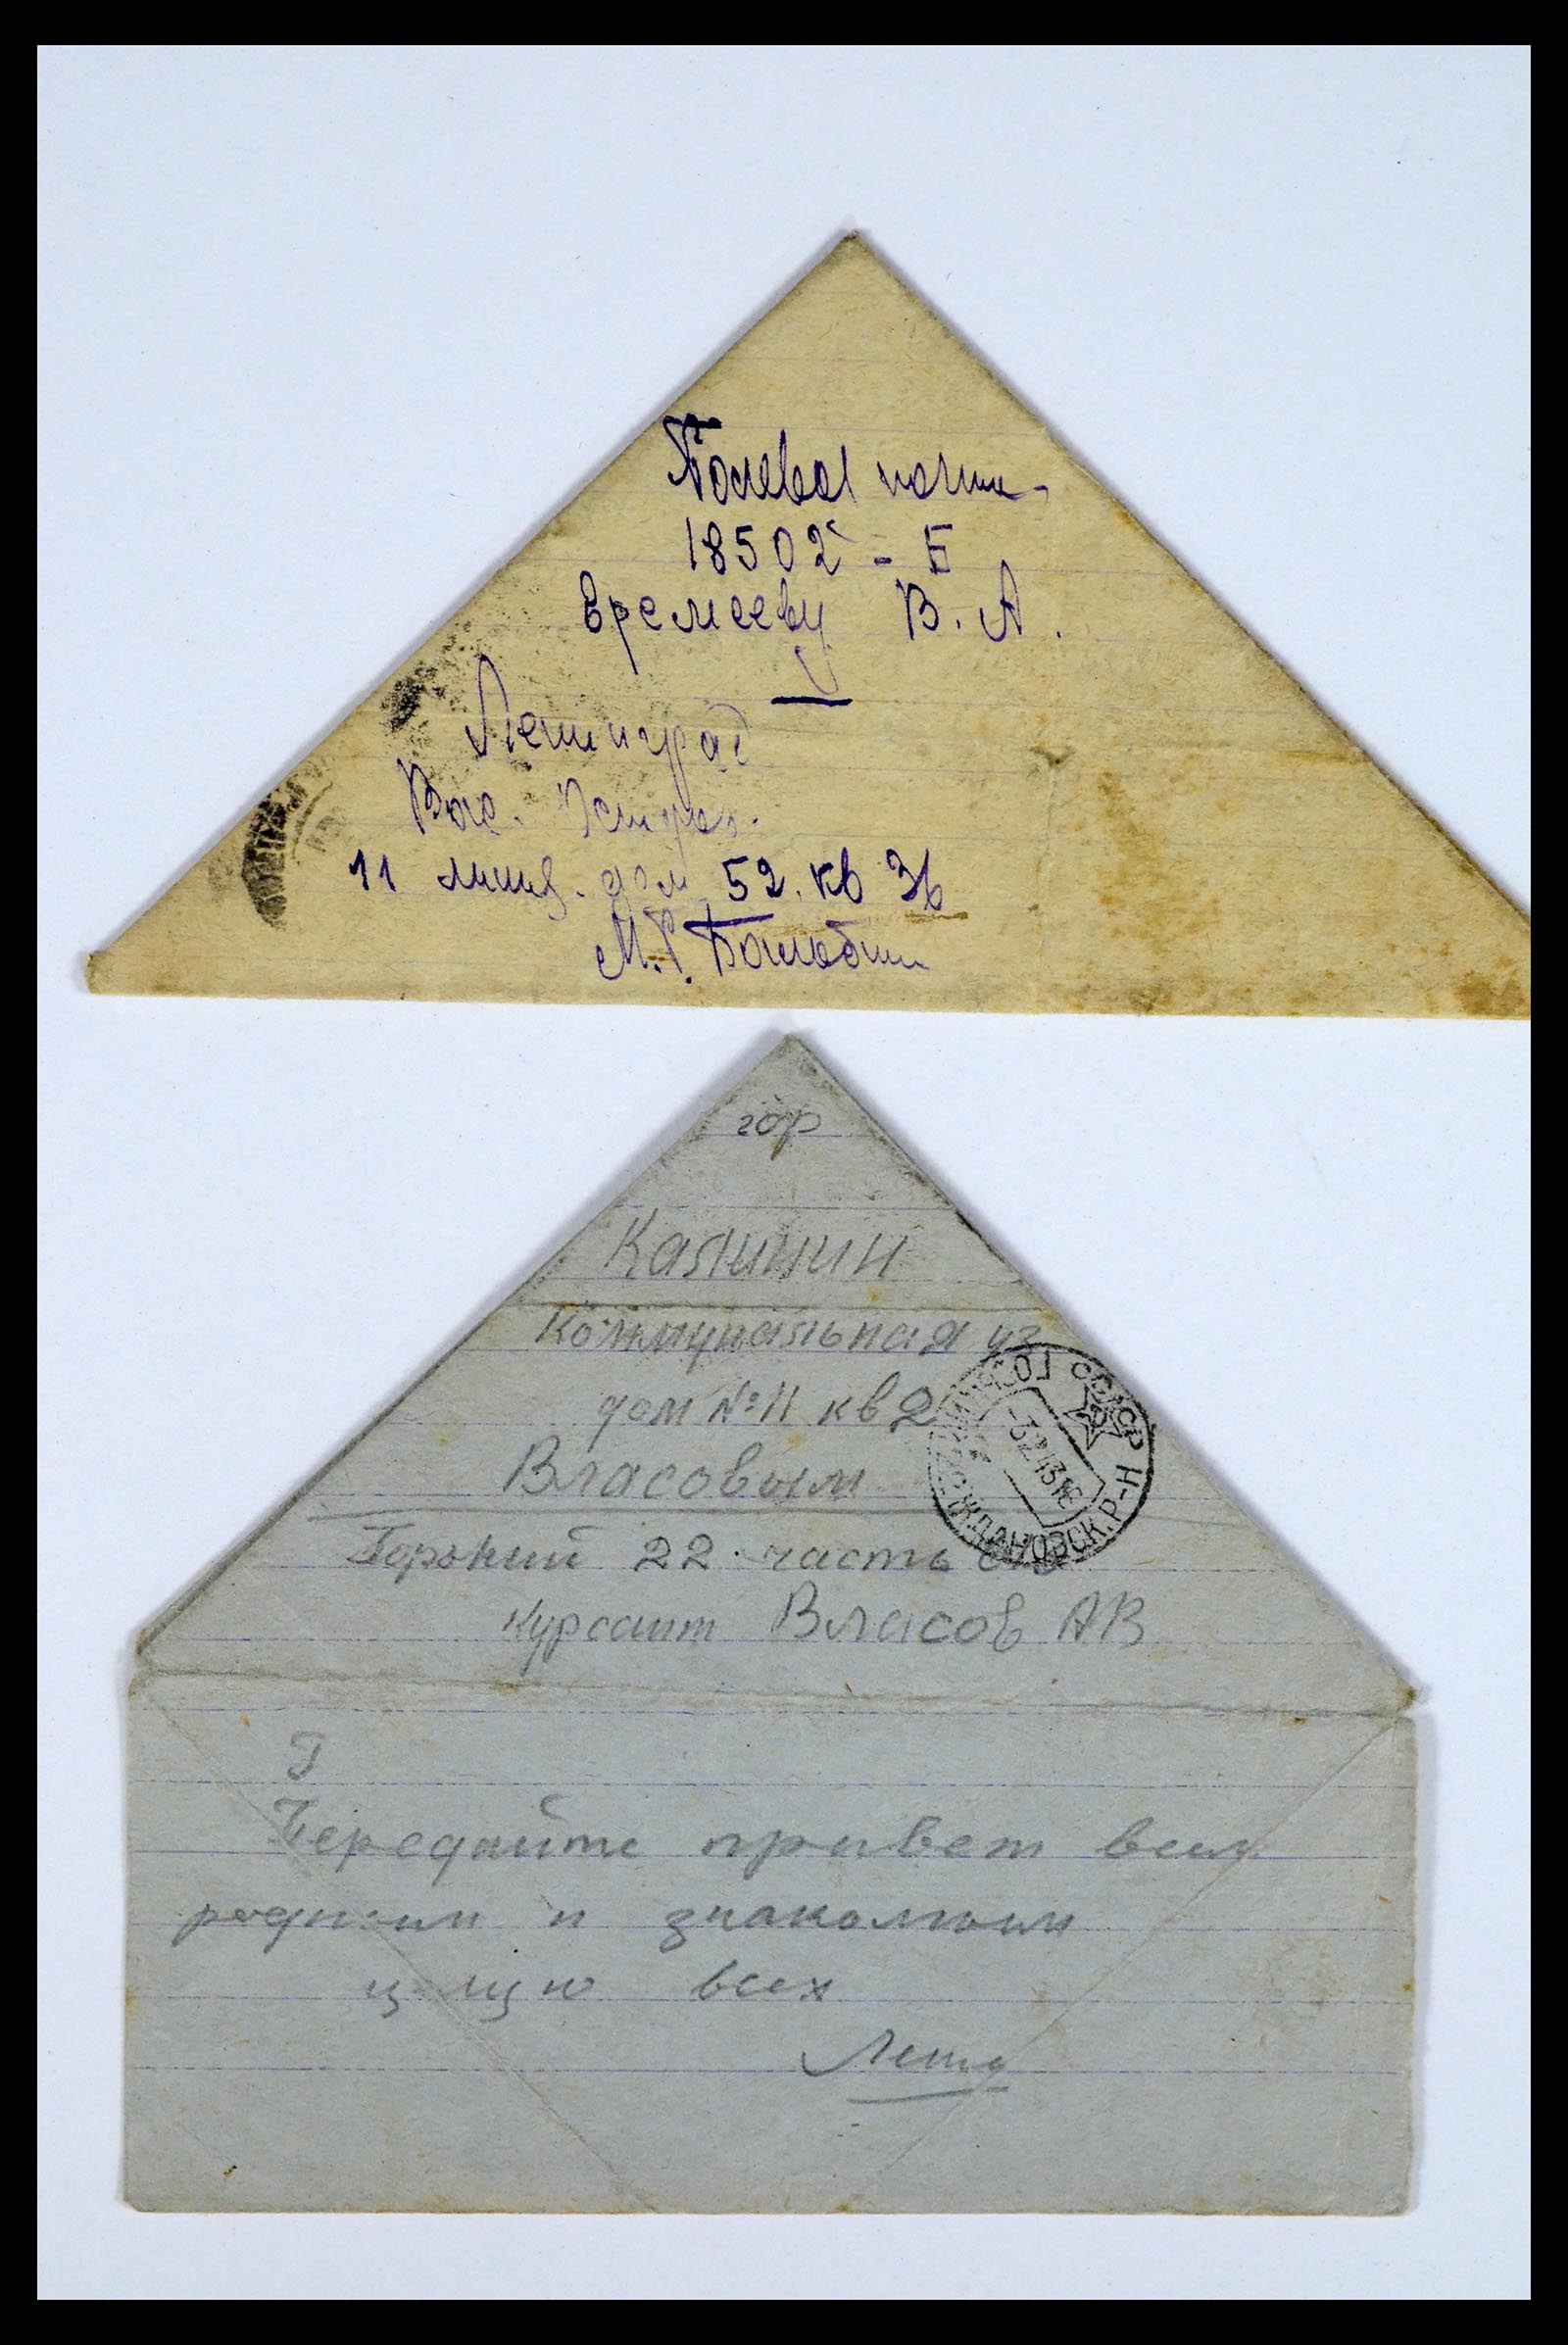 Полевая почта
18502 - Б
Еремееву В. А.
Ленинград
Вас. Остров.
11 линия. дом 52. кв 36
М. Г.
гор
Калинин
Коммунальная ул
дом № 11 кв 2
Власовым
Горький 22 часть
курсант Власов АВ
П
Передайте привет всем
родным и знакомым
целую всех
ЖДАНОВСК. Р-Н